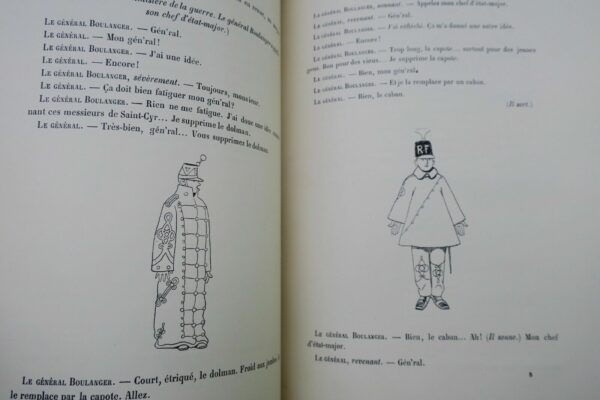 nistère de la guerre. Le général Boulanger
son chef d'état-major.)
Le général Boulanger. — Gén'ral.
Le général. — Mon gén'ral !
Le général Boulanger. — J'ai une idée.
Le général. — Encore !
Le général Boulanger, sévèrement. — Toujours, monsieur.
Le général. — Ça doit bien fatiguer mon gén'ral ?
Le général Boulanger. — Rien ne me fatigue. J'ai donc une idée
nant ces messieurs de Saint-Cyr... Je supprime le dolman.
Le général. — Très-bien, gén'ral... Vous supprimez le dolman.
Le général Boulanger. — Court, étriqué, le dolman. Froid aux jambes
le remplace par la capote. Allez.
Le général Boulanger, sonnant. — Appelez mon chef d'état-major.
Le général, revenant. — Gén'ral.
Le général Boulanger. — J'ai réfléchi. Ça m'a donné une autre idée.
Le général. — Encore !
Le général Boulanger. — Trop long, la capote... surtout pour des jeunes
gens. Bon pour des vieux... Je supprime la capote.
Le général. — Bien, mon gén'ral.
Le général Boulanger. — Et je la remplace par un caban.
Le général. — Bien, le caban.
(Il sort.)
RF
Le général Boulanger. — Bien, le caban... Ah ! (Il sonne.) Mon chef
d'état-major.
Le général, revenant. — Gén'ral.
8